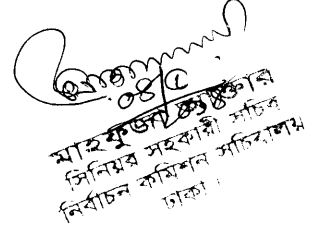 মাহফুজা আক্তার
সিনিয়র সহকারী সচিব
নির্বাচন কমিশন সচিবালয়
ঢাকা।